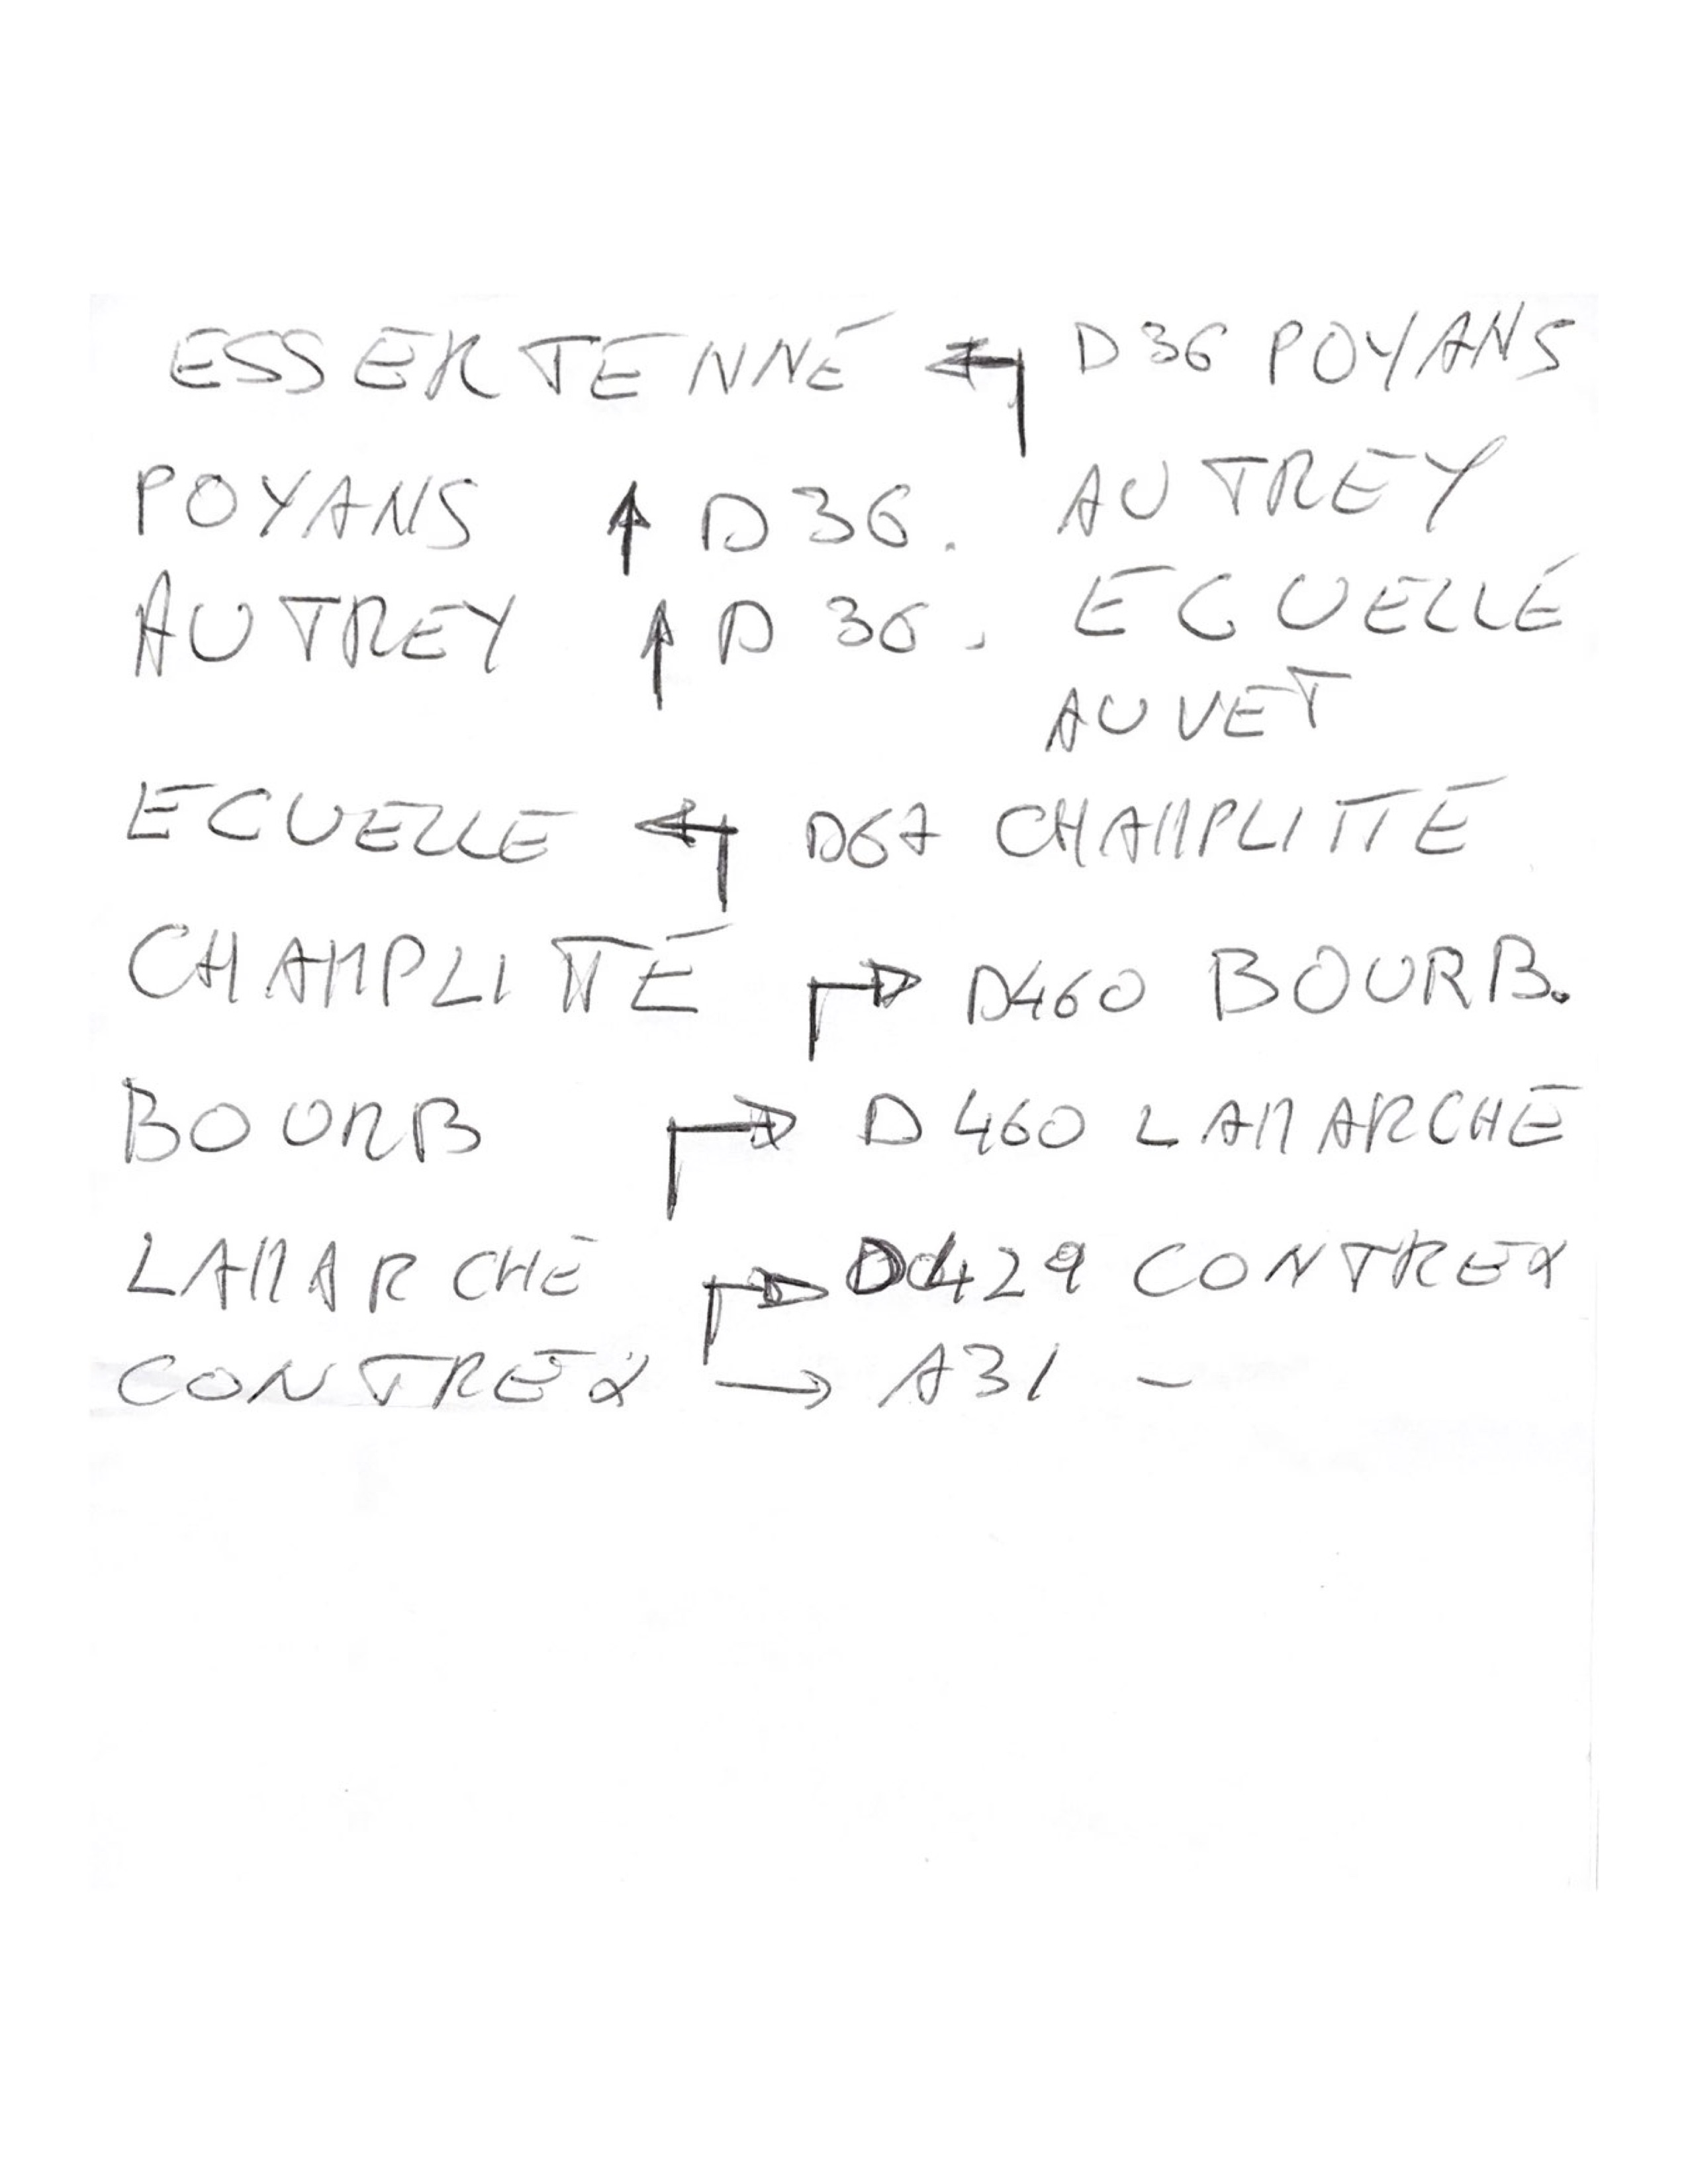 ESSERTENNE ↰ D36 POYANS
POYANS ↑ D36. AUTREY
AUTREY ↑ D36. ECUELLE
AUVET
ECUELLE ↰ D67 CHAMPLITTE
CHAMPLITTE ↱ D460 BOURB.
BOURB ↱ D460 LAMARCHE
LAMARCHE ↱ D429 CONTREX
CONTREX → A31 -